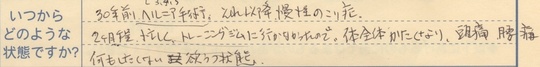 いつから
どのような
状態ですか?
30年前ヘルニア手術、それ以降慢性のこり症。
2ヶ月程忙しく、トレーニングジムに行かなかったので。体全体かたくなり、頭痛 腰痛
何もしたくない 欲うつ状態